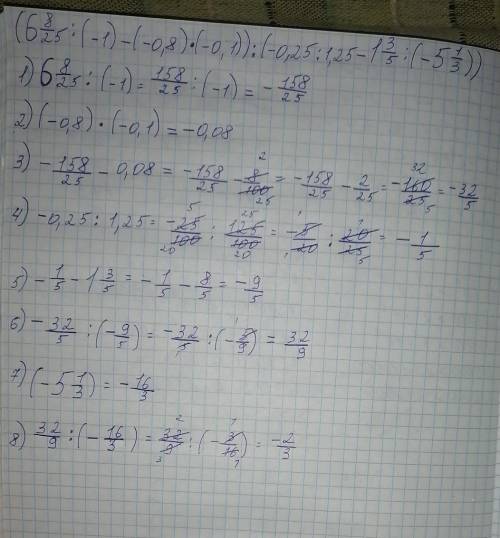 (6 8/25 : (-1) - (-0,8) * (-0,1)) : (-0,25 : 1,25 - 1 3/5 : (-5 1/3))
1) 6 8/25 : (-1) = 158/25 : (-1) = - 158/25
2) (-0,8) · (-0,1) = -0,08
3) - 158/25 - 0,08 = -158/25 - 8/100 = -158/25 - 2/25 = - 160/25 = -32/5
4) -0,25 : 1,25 = -25/100 : 125/100 = -5/20 : 20/25 = - 1/5
5) - 1/5 - 1 3/5 = - 1/5 - 8/5 = -9/5
6) - 32/5 : (- 9/5) = -32/5 : (- 5/9) = 32/9
7) (-5 1/3) = - 16/3
8) 32/9 : (- 16/3) = 32/9 : (- 3/16) = -2/3